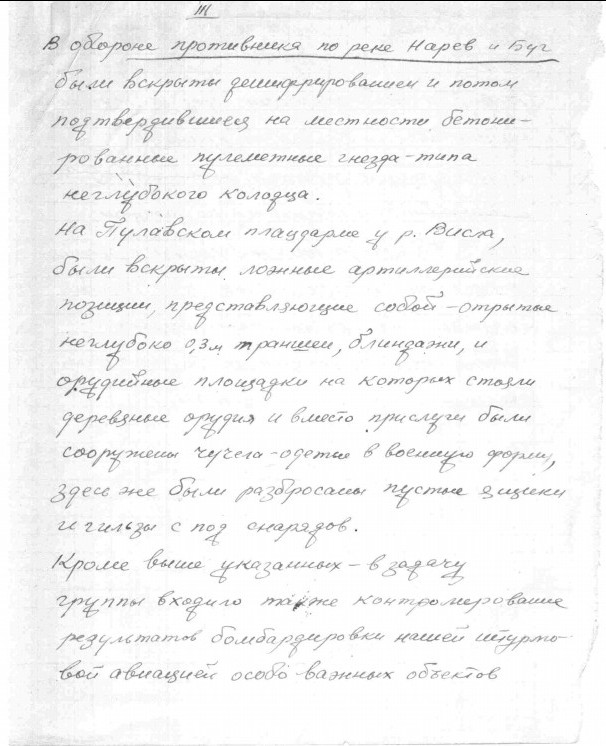 III
В обороне противника по реке Нарев и Буг
были вскрыты дешифрированием и потом
подтвердившиеся на местности бетони-
рованные пулеметные гнезда-типа
неглубокого колодца.
На Пулавском плацдарме у р. Висла,
были вскрыты ложные артиллерийские
позиции, представляющие собой-отрытые
неглубоко 0,3м траншеи, блиндажи, и
орудийные площадки на которых стояли
деревяные орудия и вместо прислуги были
сооружены чучела-одетые в военную форму,
здесь же были разбросаны пустые ящики
и гильзы с под снарядов.
Кроме выше указанных - в задачу
группы входило также контролирование
результатов бомбардировки нашей штурмо-
вой авиацией особо-важных объектов